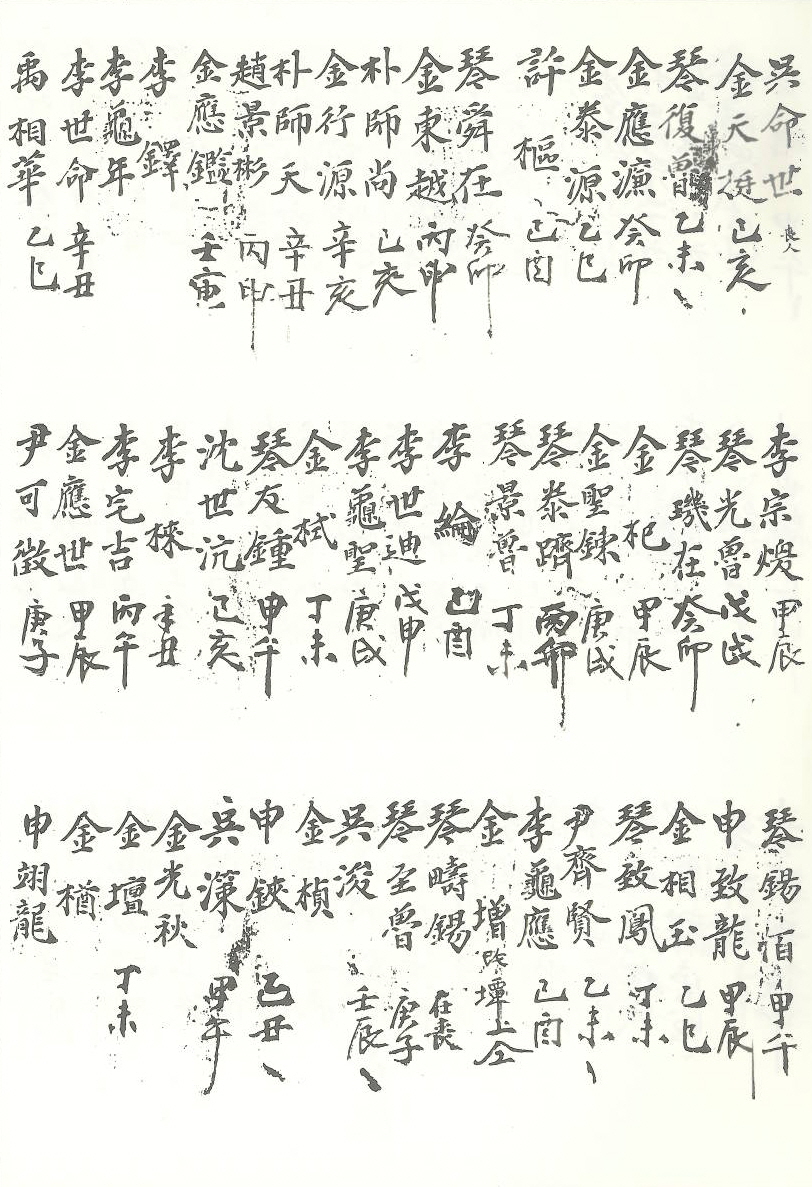 吳命世 喪人
金天挺 己亥
琴復 乙未
金應濂 癸卯
金泰源 乙巳
許樞 己酉
琴舜在 癸卯
金東越 丙申
朴師尚 己亥
金行源 辛亥
朴師天 辛丑
趙景彬 丙申
金應鑑 壬寅
李鐸
李龜年
李世命 辛丑
禹相華 乙巳
李宗煥 甲辰
琴光魯 戊戌
琴璣在 癸卯
金杞 甲辰
金聖鍊 庚戌
琴泰躋
琴景魯 丁未
李綸 己酉
李世迪 戊申
李龜聖 庚戌
金栻 丁未
琴友鍾 甲午
沈世沆 己亥
李 辛丑
李宅吉 丙午
金應世 甲辰
尹可徵 庚子
琴錫 甲午
申致龍 甲辰
金相玉 乙巳
琴致鳳 丁未
尹齊賢 乙未
李龜應 己酉
金增 改墰上仝
琴疇錫 在喪
琴至魯 庚子
吳浚 壬辰
金楨
申鋏 己丑
吳瀿 甲午
金光秋
金壇 丁未
金楢
申翊龍